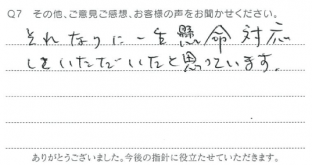 Q7 その他、ご意見ご感想、お客様の声をお聞かせください。
それなりに一生懸命対応
しをいただいたと思っています。
ありがとうございました。今後の指針に役立たせていただきます。